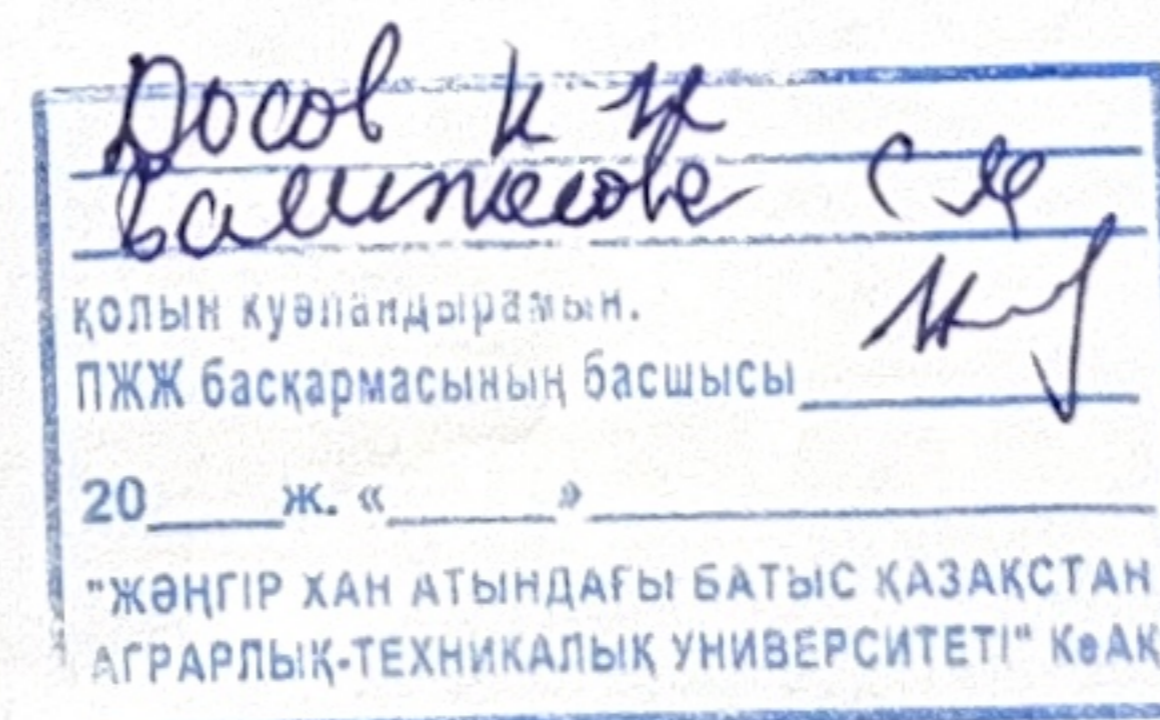 Досов К Ж
қолын куәландырамын.
ПЖЖ басқармасының басшысы
20_____ж. «______»
"ЖӘҢГІР ХАН АТЫНДАҒЫ БАТЫС ҚАЗАҚСТАН
АГРАРЛЫҚ-ТЕХНИКАЛЫҚ УНИВЕРСИТЕТІ" КеАҚ